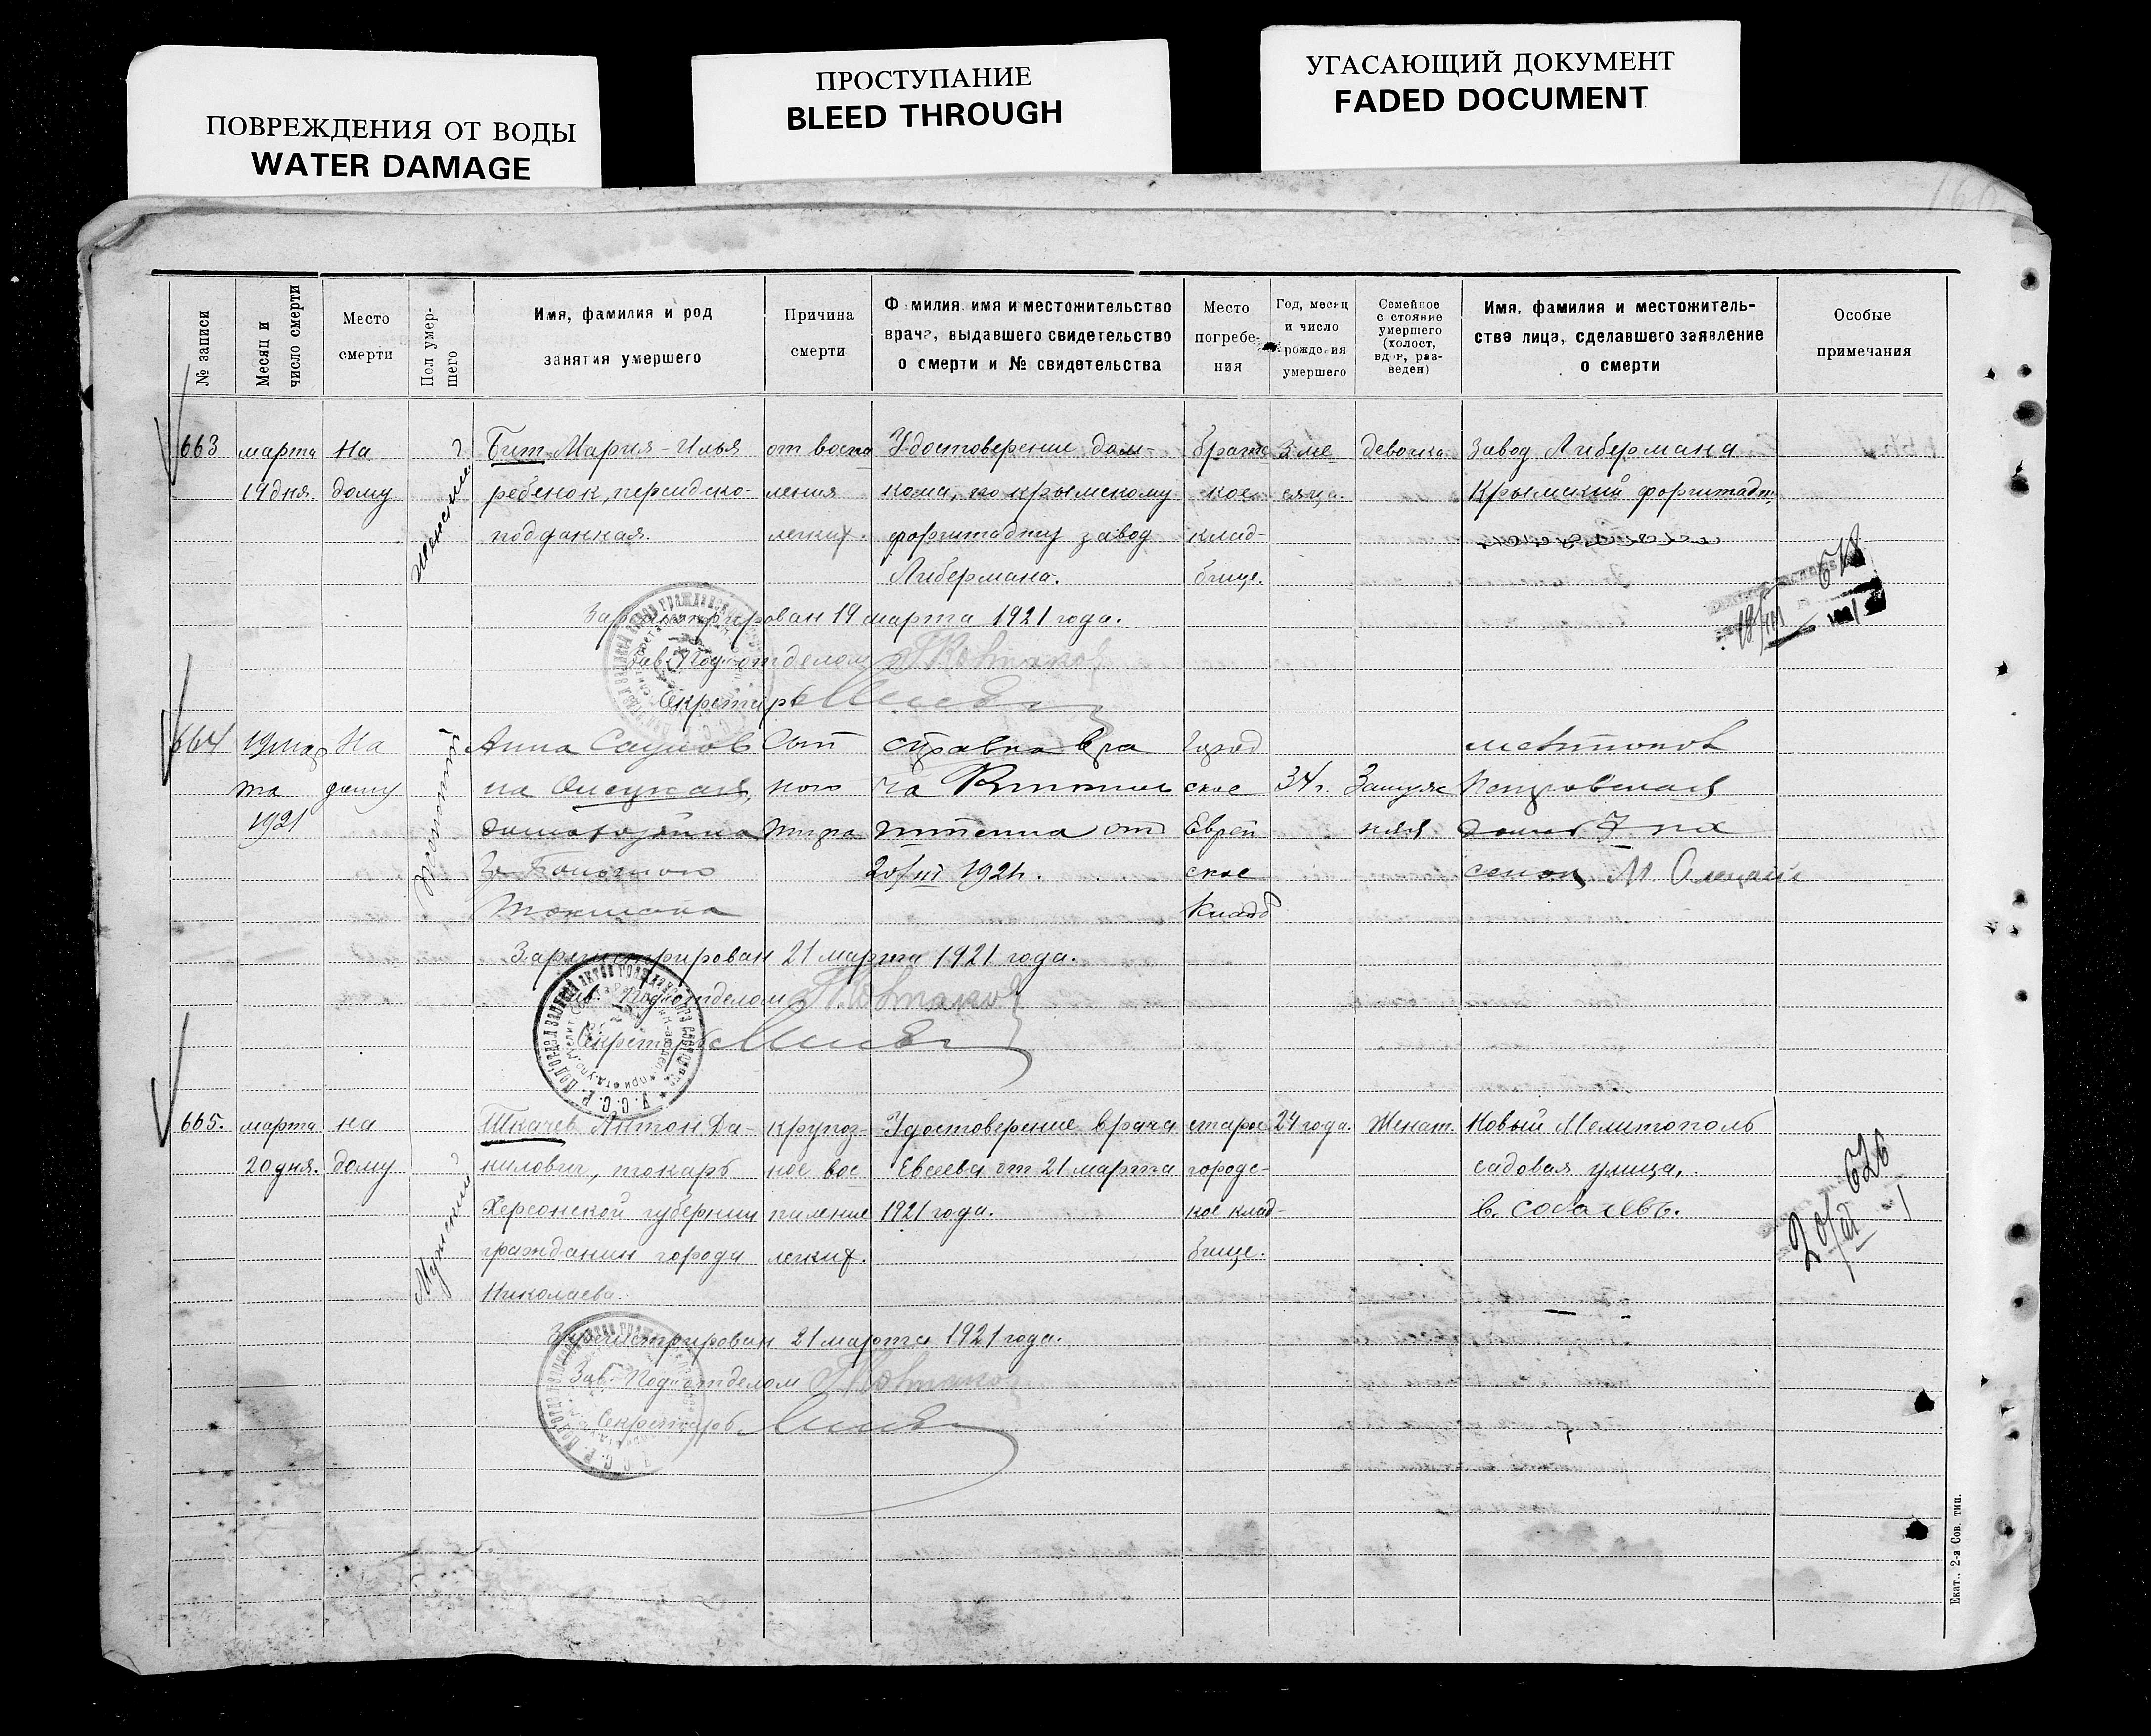 ПОВРЕЖДЕНИЯ ОТ ВОДЫ
WATER DAMAGE
ПРОСТУПАНИЕ
BLEED THROUGH
УГАСАЮЩИЙ ДОКУМЕНТ
FADED DOCUMENT
№ записи
Месяц и
число смерти
Место
смерти
Пол умер-
шего
Имя, фамилия и род
занятия умершего
Причина
смерти
Фамилия, имя и местожительство
врача, выдавшего свидетельство
о смерти и № свидетельства
Место
погребе-
ния
Год, месяц
и число
рождения
умершего
Семейное
состояние
умершего
(холост,
вдов, раз-
веден)
Имя, фамилия и местожитель-
ства лица, сделавшего заявление
о смерти
Особые
примечания
663
марта
19 дня.
на
дому
женский
Бит Мария-Илья
ребенок, персидско-
подданная.
от воспа
ления
легких.
Удостоверение дом-
кома, по крымскому
форштадту завод
Либермана.
братс
кое
клад-
бище.
3 ме
сяца.
девочка
Завод Либермана
Крымский форштадт,
618
19/III
Зарегистрирован 19 марта 1921 года.
Зав. Под'отделом
Секретарь
664
19 мар
та
1921
На
дому
Женский
Анна
домохозяйка
Токмака
Сып
ного
тифа
справка вра
ча
от
20/III 1921.
Город
ское
Еврей
ское
Кладб
34 г.
Замуж
няя
Мелитополь
дом № 7
Зарегистрирован 21 марта 1921 года.
Зав. Под'отделом
Секретарь
665.
марта
20 дня.
на
дому
Мужской
Ткачев Антон Да-
нилович, токарь
Херсонской губернии
гражданин города
Николаева.
крупоз-
ное вос
паление
легких.
Удостоверение врача
Евсеева от 21 марта
1921 года.
старое
городс-
кое клад-
бище.
24 года.
Женат.
Новый Мелитополь
садовая улица,
626
20/III
Зарегистрирован 21 марта 1921 года.
Зав. Под'отделом
Секретарь
Екат., 2-я Сов. тип.